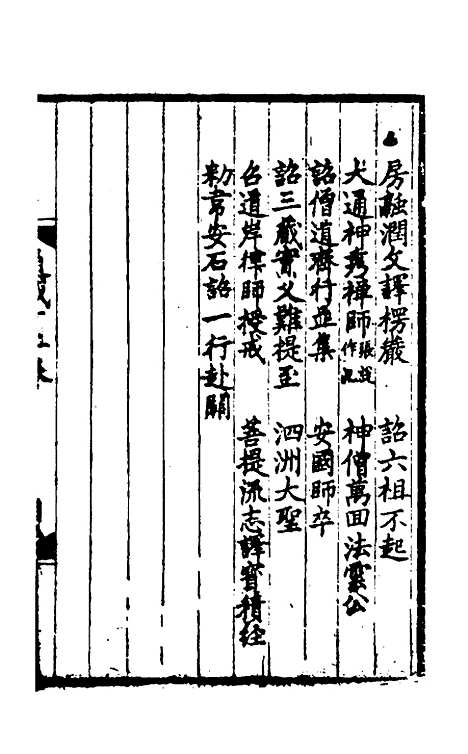 房融潤文譯楞嚴　詔六祖不起
大通神秀禪師張說作記　神僧萬回法雲公
詔僧道齊行並集　安國師卒
詔三藏實叉難提至　泗洲大聖
召道岸律師授戒　菩提流志譯寶積經
勑韋安石詔一行赴闕